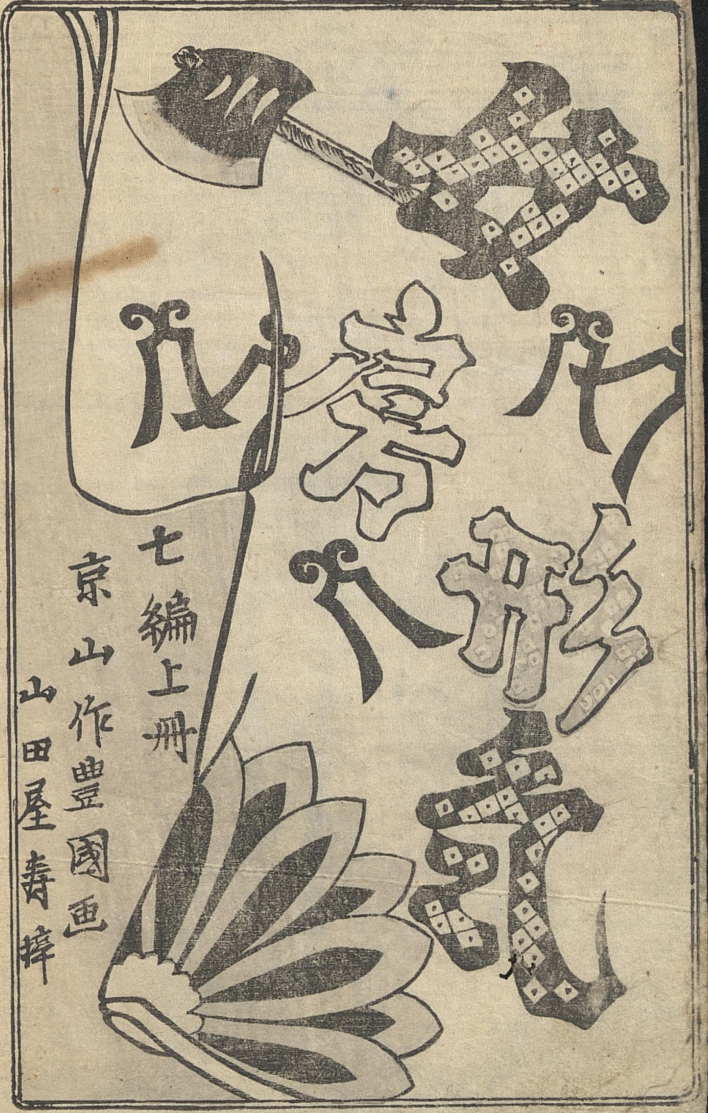 女房形気
七編上冊
京山作豊國画
山田屋寿梓